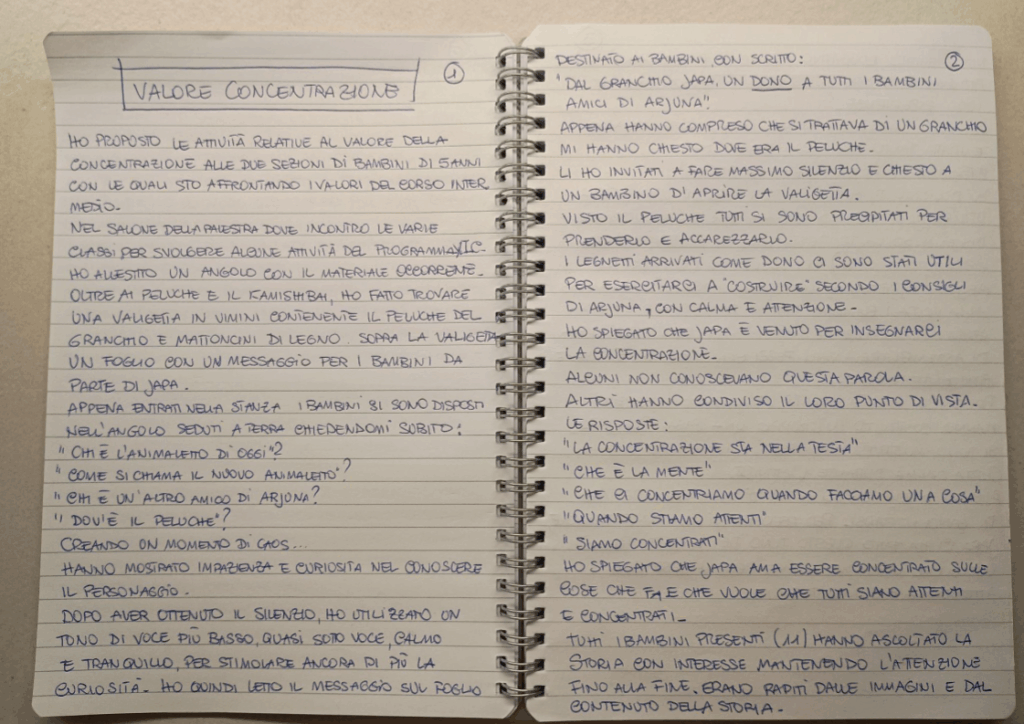 VALORE CONCENTRAZIONE
1
HO PROPOSTO LE ATTIVITÀ RELATIVE AL VALORE DELLA
CONCENTRAZIONE ALLE DUE SEZIONI DI BAMBINI DI 5 ANNI
CON LE QUALI STO AFFRONTANDO I VALORI DEL CORSO INTER
MEDIO.
NEL SALONE DELLA PALESTRA DOVE INCONTRO LE VARIE
CLASSI PER SVOLGERE ALCUNE ATTIVITÀ DEL PROGRAMMA YIC.
HO ALLESTITO UN ANGOLO CON IL MATERIALE OCCORRENTE.
OLTRE AI PELUCHE E IL KAMISHIBAI, HO FATTO TROVARE
UNA VALIGETTA IN VIMINI CONTENENTE IL PELUCHE DEL
GRANCHIO E MATTONCINI DI LEGNO. SOPRA LA VALIGETTA
UN FOGLIO CON UN MESSAGGIO PER I BAMBINI DA
PARTE DI JAPA.
APPENA ENTRATI NELLA STANZA I BAMBINI SI SONO DISPOSTI
NELL'ANGOLO SEDUTI A TERRA CHIEDENDOMI SUBITO:
"CHI È L'ANIMALETTO DI OGGI"?
"COME SI CHIAMA IL NUOVO ANIMALETTO"?
"CHI È UN'ALTRO AMICO DI ARJUNA?
"DOV'È IL PELUCHE"?
CREANDO UN MOMENTO DI CAOS...
HANNO MOSTRATO IMPAZIENZA E CURIOSITÀ NEL CONOSCERE
IL PERSONAGGIO.
DOPO AVER OTTENUTO IL SILENZIO, HO UTILIZZATO UN
TONO DI VOCE PIÙ BASSO, QUASI SOTTO VOCE, CALMO
E TRANQUILLO, PER STIMOLARE ANCORA DI PIÙ LA
CURIOSITÀ. HO QUINDI LETTO IL MESSAGGIO SUL FOGLIO
2
DESTINATO AI BAMBINI, CON SCRITTO:
"DAL GRANCHIO JAPA, UN DONO A TUTTI I BAMBINI
AMICI DI ARJUNA".
APPENA HANNO COMPRESO CHE SI TRATTAVA DI UN GRANCHIO
MI HANNO CHIESTO DOVE ERA IL PELUCHE.
LI HO INVITATI A FARE MASSIMO SILENZIO E CHIESTO A
UN BAMBINO DI APRIRE LA VALIGETTA.
VISTO IL PELUCHE TUTTI SI SONO PRECIPITATI PER
PRENDERLO E ACCAREZZARLO.
I LEGNETTI ARRIVATI COME DONO CI SONO STATI UTILI
PER ESERCITARCI A "COSTRUIRE" SECONDO I CONSIGLI
DI ARJUNA, CON CALMA E ATTENZIONE.
HO SPIEGATO CHE JAPA È VENUTO PER INSEGNARCI
LA CONCENTRAZIONE.
ALCUNI NON CONOSCEVANO QUESTA PAROLA.
ALTRI HANNO CONDIVISO IL LORO PUNTO DI VISTA.
LE RISPOSTE:
"LA CONCENTRAZIONE STA NELLA TESTA"
"CHE È LA MENTE"
"CHE CI CONCENTRIAMO QUANDO FACCIAMO UNA COSA"
"QUANDO STIAMO ATTENTI"
"SIAMO CONCENTRATI"
HO SPIEGATO CHE JAPA AMA ESSERE CONCENTRATO SULLE
COSE CHE FA E CHE VUOLE CHE TUTTI SIANO ATTENTI
E CONCENTRATI.
TUTTI I BAMBINI PRESENTI (11) HANNO ASCOLTATO LA
STORIA CON INTERESSE MANTENENDO L'ATTENZIONE
FINO ALLA FINE. ERANO RAPITI DALLE IMMAGINI E DAL
CONTENUTO DELLA STORIA.